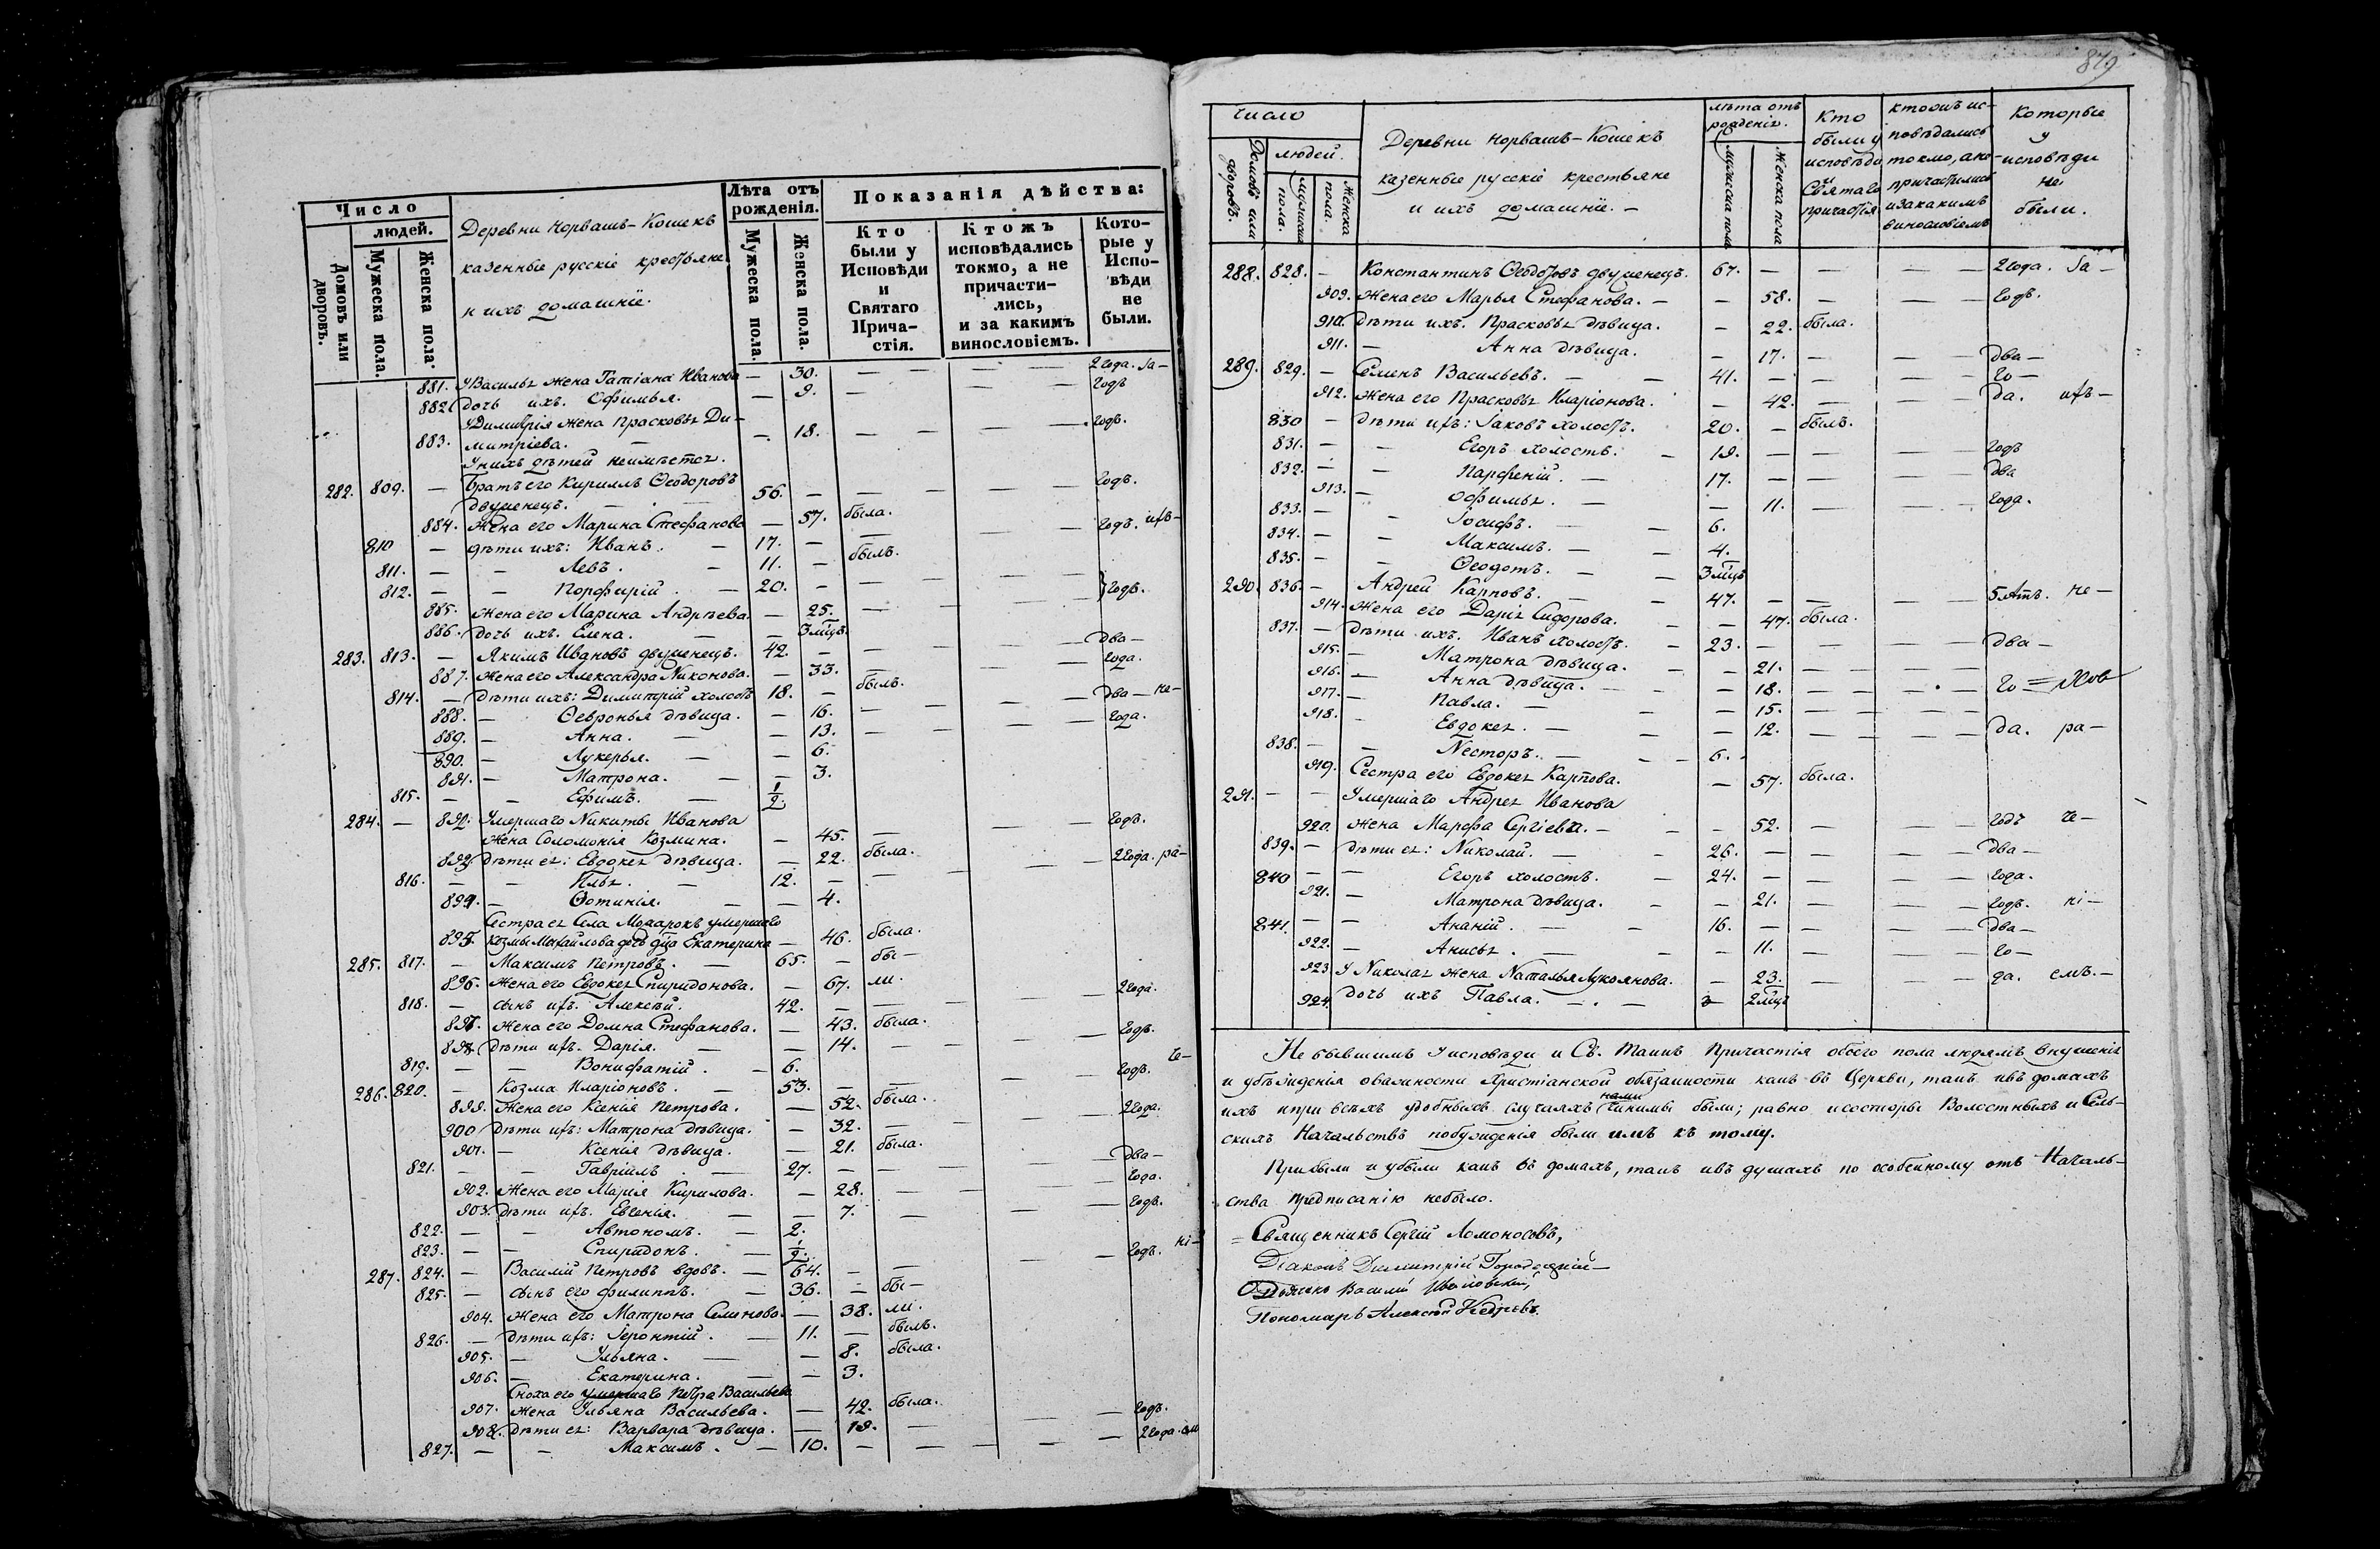 Число
людей.
Домовъ или дворовъ.
Мужеска пола.
Женска пола.
Деревни Норвашъ-Кошекъ
казенные русскіе крестьяне
и ихъ домашніе.
Лѣта отъ рожденія.
Мужеска пола.
Женска пола.
Показанія дѣйства:
Кто были у Исповѣди и Святаго Причастія.
Ктожъ исповѣдались токмо, а не причастились, и за какимъ винословіемъ.
Которые у Исповѣди не были.
881. У Василья жена Татіана Иванова — 30. — — — — 2 года. За-
882 дочь ихъ. Офимья. — 9. — — — годъ
У Димитрія жена Прасковья Ди-
883. митріева. — — 18. — — — — годъ.
У нихъ дѣтей неимѣется.
282. 809. — Братъ его Кириллъ Ѳеодоровъ
двуженецъ. — 56. — — — — — годъ.
884. жена его Марина Стефанова — 57. была.
810 — дѣти ихъ: Иванъ. — 17. — — — — годъ. ихъ-
811. — — Левъ. — 11. — былъ.
812. — — Порфирій. — 20. — — — — — годъ.
885. жена его Марина Андреева. — 25. — — —
886. дочь ихъ. Елена. — — 3 мцъ.
283. 813. — Якимъ Ивановъ двуженецъ. 42. — — — — два-
887. жена его Александра Никонова. — 33. — — — — года.
814. — дѣти ихъ: Димитрій холостъ 18. — былъ.
888. — Ѳевронья дѣвица. — 16. — — — — два — не-
889. — Анна. — — 13. — — — — года.
890. — Лукерья. — — 6.
891. — Матрона. — — 3.
815. — — Ефимъ. — 1/2
284. — 892. Умершаго Никиты Иванова
жена Соломонія Козмина. — 45. — — — годъ.
893. дѣти ея: Евдокея дѣвица. — 22. была.
816. — — Илья. — 12. — — — — — 2 года. ра-
894. — Ѳотинія. — — 4.
Сестра ея Села Можарокъ умершаго
895. Козмы Михайлова дочь дца Екатерина — 46. была.
285. 817. — Максимъ Петровъ. — 65. — бы-
896. жена его Евдокея Спиридонова. — 67. ли.
818. — сынъ ихъ. Алексѣй. 42. — — — — 2 года.
897. жена его Домна Стефанова. — 43. была.
898. дѣти ихъ. Дарія. — — 14. — — — — годъ.
819. — — Вонифатій. — 6. че-
286. 820. — Козма Иларіоновъ. — 53. — — — — годъ.
899. жена его Ксенія Петрова. — 52. была.
900 дѣти ихъ: Матрона дѣвица. — 32. — — — — 2 года.
901. — Ксенія дѣвица. — 21. была.
821. — — Гавріилъ. — 27. — — — — — два-
902. жена его Марія Кирилова. — 28. — — — года.
903. дѣти ихъ. Евгенія. — — 7. — — — годъ.
822. — — Автономъ. — 2.
823. — — Спиридонъ. — 1/2.
287. 824. — Василій Петровъ вдовъ. — 64. — — — годъ. ні-
825. — сынъ его Филиппъ. — 36. — бы-
904. жена его Матрона Семенова. — 38. ли.
826. — дѣти ихъ: Геронтій. — 11. — былъ.
905. — Ульяна. — — 8. была.
906. — Екатерина. — — 3.
Сноха его умершаго Петра Васильева
907. жена Ульяна Васильева. — 42. была.
908. дѣти ея: Варвара дѣвица. — 19. — — — годъ.
827. — — Максимъ. — 10. — — — — — 2 года.
879
Число
людей.
Домовъ или дворовъ.
мужеска пола.
женска пола.
Деревни Норвашъ-Кошекъ
казенные русскіе крестьяне
и ихъ домашніе. —
лѣта отъ рожденія.
мужеска пола
женска пола
Кто были у исповѣди и Святаго причастія
ктожъ исповѣдались токмо, а не причастились и за какимъ винословіемъ
Которые у исповѣди не были.
288. 828. — Константинъ Ѳеодоровъ двуженецъ. 67. — — — — 2 года. За-
909. жена его Марья Стефанова. — — 58. — — — годъ.
910. дѣти ихъ. Прасковья дѣвица. — 22. была.
911. — Анна дѣвица. — 17. — — — два-
289. 829. — Семенъ Васильевъ. — — 41. — — — — го-
912. жена его Прасковья Иларіонова. — 42. — — — да. ихъ-
830 — дѣти ихъ: Іаковъ холостъ. 20. — былъ.
831. — — Егоръ холостъ. — 19. — — — — годъ
832. — — Парѳеній. — 17. — — — — два
913. — Офимья. — — 11. — — — года.
833. — — Іосифъ. — — 6.
834. — — Максимъ. — — 4.
835. — — Ѳеодотъ. — — 3 мцъ
290. 836. — Андрей Карповъ. — — 47. — — — — 5 лѣтъ. не-
914. жена его Дарія Сидорова. — — 47. была.
837. — дѣти ихъ. Иванъ холостъ. — 23. — — — — два-
915. — Матрона дѣвица. — — 21. — — — —
916. — Анна дѣвица. — — 18. — — — — го-
917. — Павла. — — — 15. — — — —
918. — Евдокея. — — — 12. — — — — да. ра-
838. — — Несторъ. — — — 6. -
919. Сестра его Евдокея Карпова. — 57. была.
291. — — Умершаго Андрея Иванова
920. жена Марфа Сергіева. — — — 52. — — — годъ че-
839. — дѣти ея: Николай. — — 26. — — — — два-
840 — — Егоръ холостъ. — 24. — — — — года.
921. — Матрона дѣвица. — — 21. — — — годъ. ні-
841. — — Ананій. — — 16. — — — — два-
922. — Анисья. — — — 11. — — — го-
923 У Николая жена Наталья Лукоянова. — 23. — — — да. емъ. —
924. дочь ихъ Павла. — . — 2 мцъ
Не бывшимъ у исповѣди и Св. Таинъ Причастія обоего пола людямъ внушенія
и убѣжденія о важности Христіанской обязанности какъ въ Церкви, такъ и въ домахъ
ихъ и при всѣхъ удобныхъ случаяхъ нами чинимы были; равно и со стороны Волостныхъ и Сель-
скихъ Начальствъ побужденія были имъ къ тому.
Прибыли и убыли какъ въ домахъ, такъ и въ душахъ по особенному отъ Началь-
ства предписанію небыло.
Священникъ Сергій Ломоносовъ,
Діаконъ Димитрій
Василій
Пономарь Алексѣй Кедровъ.